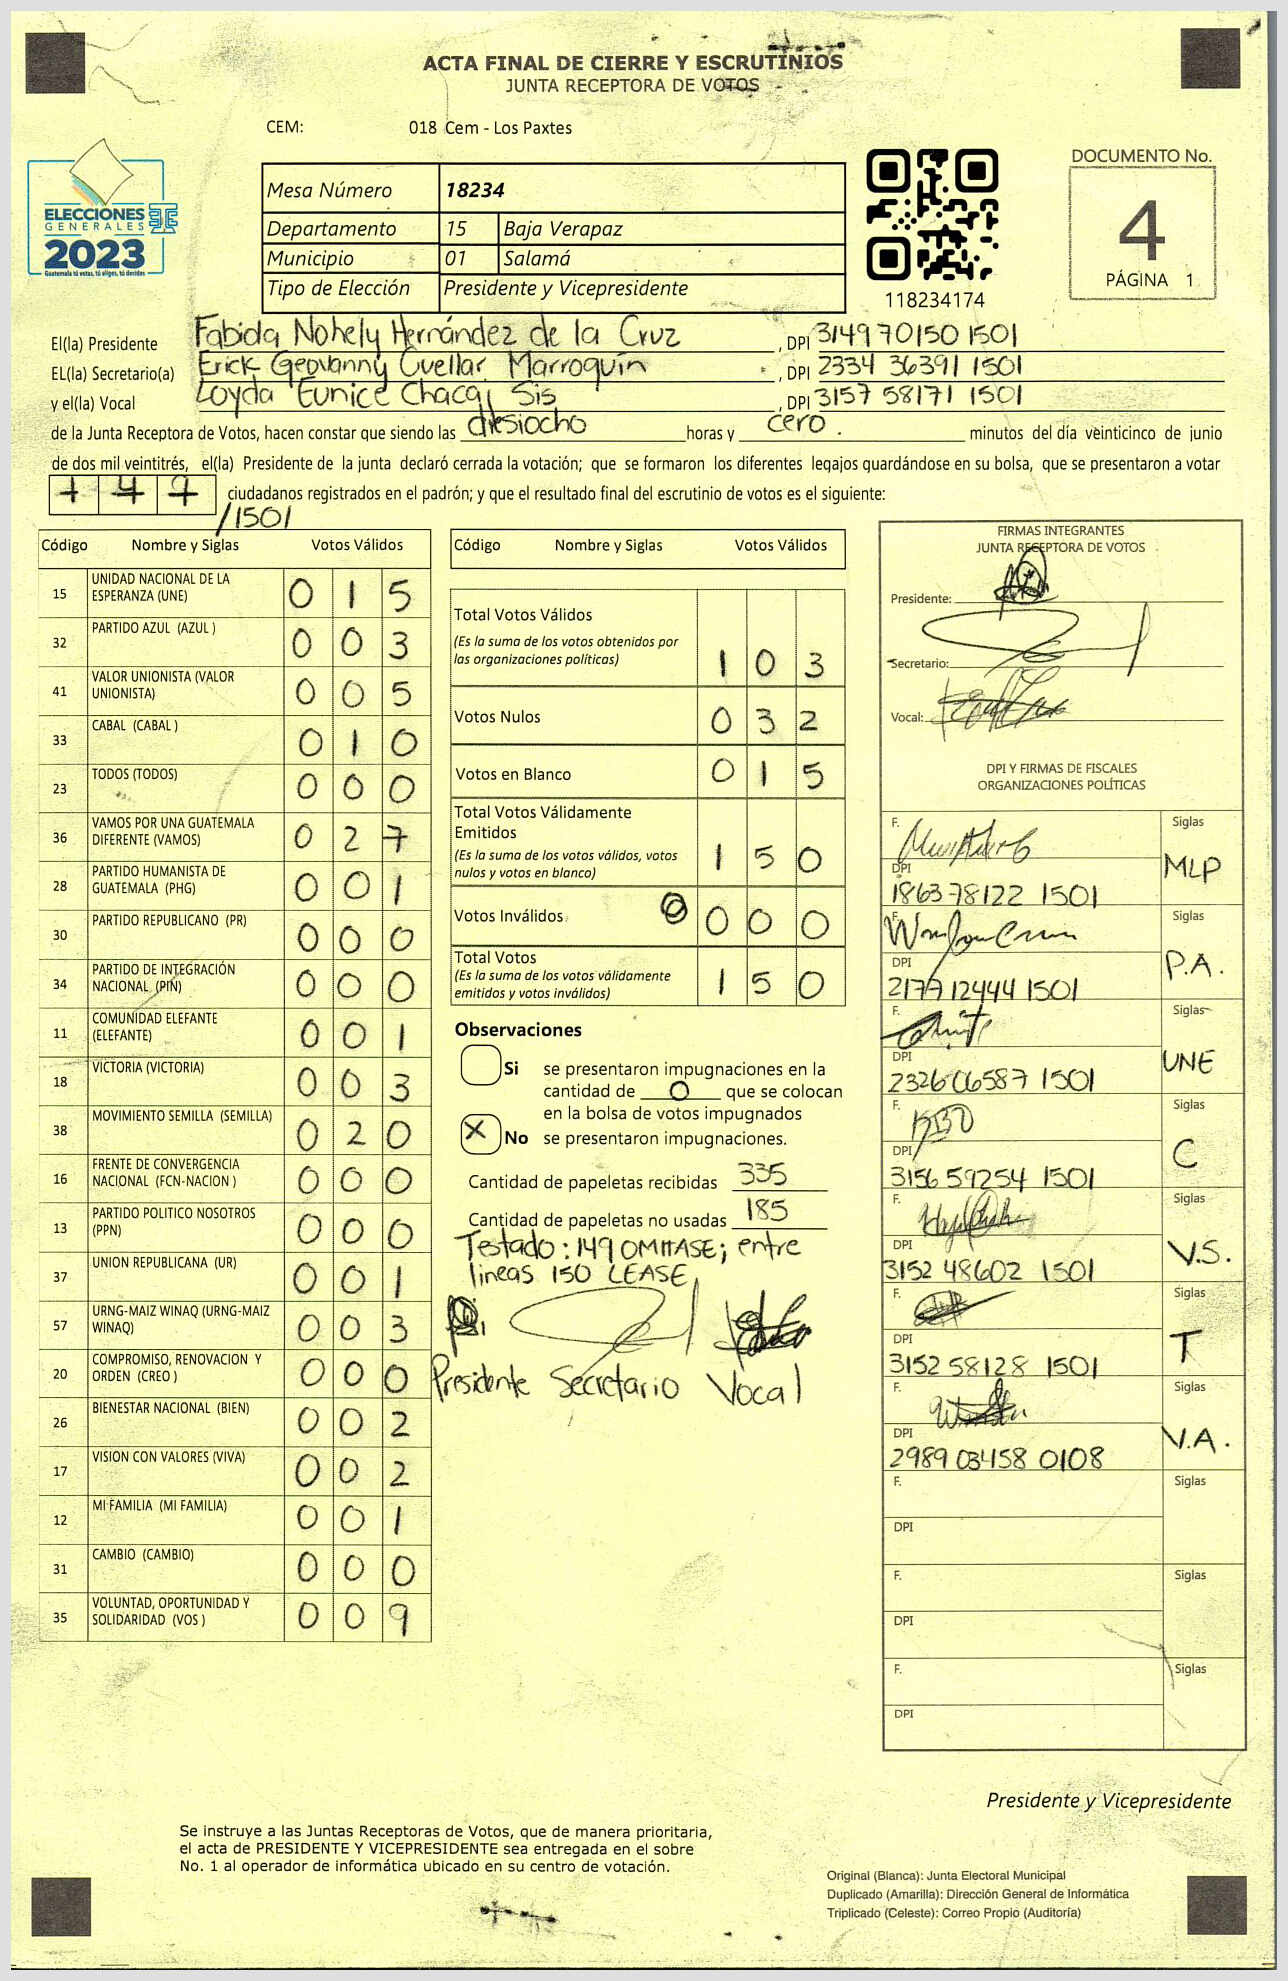 ACTA FINAL DE CIERRE Y ESCRUTINIOS
JUNTA RECEPTORA DE VOTOS
CEM: 018 Cem - Los Paxtes
ELECCIONES
GENERALES
2023
Guatemala tú votas, tú eliges, tú decides
Mesa Número 18234
Departamento 15 Baja Verapaz
Municipio 01 Salamá
Tipo de Elección Presidente y Vicepresidente
118234174
DOCUMENTO No.
4
PÁGINA 1
El(la) Presidente Fabiola Nohely Hernández de la Cruz, DPI 3149 70150 1501
EL(la) Secretario(a) Erick Geovanny Cuellar Marroquín, DPI 2334 36391 1501
y el(la) Vocal Loyda Eunice Chacaj Sis, DPI 3157 58171 1501
de la Junta Receptora de Votos, hacen constar que siendo las diesiocho horas y cero. minutos del día veinticinco de junio
de dos mil veintitrés, el(la) Presidente de la junta declaró cerrada la votación; que se formaron los diferentes legajos guardándose en su bolsa, que se presentaron a votar
ciudadanos registrados en el padrón; y que el resultado final del escrutinio de votos es el siguiente:
/1501
Código Nombre y Siglas Votos Válidos
15 UNIDAD NACIONAL DE LA ESPERANZA (UNE) 0 1 5
32 PARTIDO AZUL (AZUL ) 0 0 3
41 VALOR UNIONISTA (VALOR UNIONISTA) 0 0 5
33 CABAL (CABAL ) 0 1 0
23 TODOS (TODOS) 0 0 0
36 VAMOS POR UNA GUATEMALA DIFERENTE (VAMOS) 0 2 7
28 PARTIDO HUMANISTA DE GUATEMALA (PHG) 0 0 1
30 PARTIDO REPUBLICANO (PR) 0 0 0
34 PARTIDO DE INTEGRACIÓN NACIONAL (PIN) 0 0 0
11 COMUNIDAD ELEFANTE (ELEFANTE) 0 0 1
18 VICTORIA (VICTORIA) 0 0 3
38 MOVIMIENTO SEMILLA (SEMILLA) 0 2 0
16 FRENTE DE CONVERGENCIA NACIONAL (FCN-NACION ) 0 0 0
13 PARTIDO POLITICO NOSOTROS (PPN) 0 0 0
37 UNION REPUBLICANA (UR) 0 0 1
57 URNG-MAIZ WINAQ (URNG-MAIZ WINAQ) 0 0 3
20 COMPROMISO, RENOVACION Y ORDEN (CREO ) 0 0 0
26 BIENESTAR NACIONAL (BIEN) 0 0 2
17 VISION CON VALORES (VIVA) 0 0 2
12 MI FAMILIA (MI FAMILIA) 0 0 1
31 CAMBIO (CAMBIO) 0 0 0
35 VOLUNTAD, OPORTUNIDAD Y SOLIDARIDAD (VOS ) 0 0 9
Código Nombre y Siglas Votos Válidos
Total Votos Válidos
(Es la suma de los votos obtenidos por
las organizaciones políticas) 1 0 3
Votos Nulos 0 3 2
Votos en Blanco 0 1 5
Total Votos Válidamente
Emitidos
(Es la suma de los votos válidos, votos
nulos y votos en blanco) 1 5 0
Votos Inválidos 0 0 0
Total Votos
(Es la suma de los votos válidamente
emitidos y votos inválidos) 1 5 0
Observaciones
Si se presentaron impugnaciones en la
cantidad de 0 que se colocan
en la bolsa de votos impugnados
X No se presentaron impugnaciones.
Cantidad de papeletas recibidas 335
Cantidad de papeletas no usadas 185
Testado: 149 OMITASE; entre
lineas 150 LEASE,
Presidente Secretario Vocal
FIRMAS INTEGRANTES
JUNTA RECEPTORA DE VOTOS
Presidente:
Secretario:
Vocal:
DPI Y FIRMAS DE FISCALES
ORGANIZACIONES POLÍTICAS
F. Siglas
DPI MLP
1863 78122 1501
F. Siglas
DPI P.A.
2177 12444 1501
F. Siglas
DPI UNE
2326 06587 1501
F. Siglas
DPI C
3156 59254 1501
F. Siglas
DPI V.S.
3152 48602 1501
F. Siglas
DPI T
3152 58128 1501
F. Siglas
DPI V.A.
2989 03458 0108
F. Siglas
DPI
F. Siglas
DPI
F. Siglas
DPI
Presidente y Vicepresidente
Se instruye a las Juntas Receptoras de Votos, que de manera prioritaria,
el acta de PRESIDENTE Y VICEPRESIDENTE sea entregada en el sobre
No. 1 al operador de informática ubicado en su centro de votación.
Original (Blanca): Junta Electoral Municipal
Duplicado (Amarilla): Dirección General de Informática
Triplicado (Celeste): Correo Propio (Auditoría)